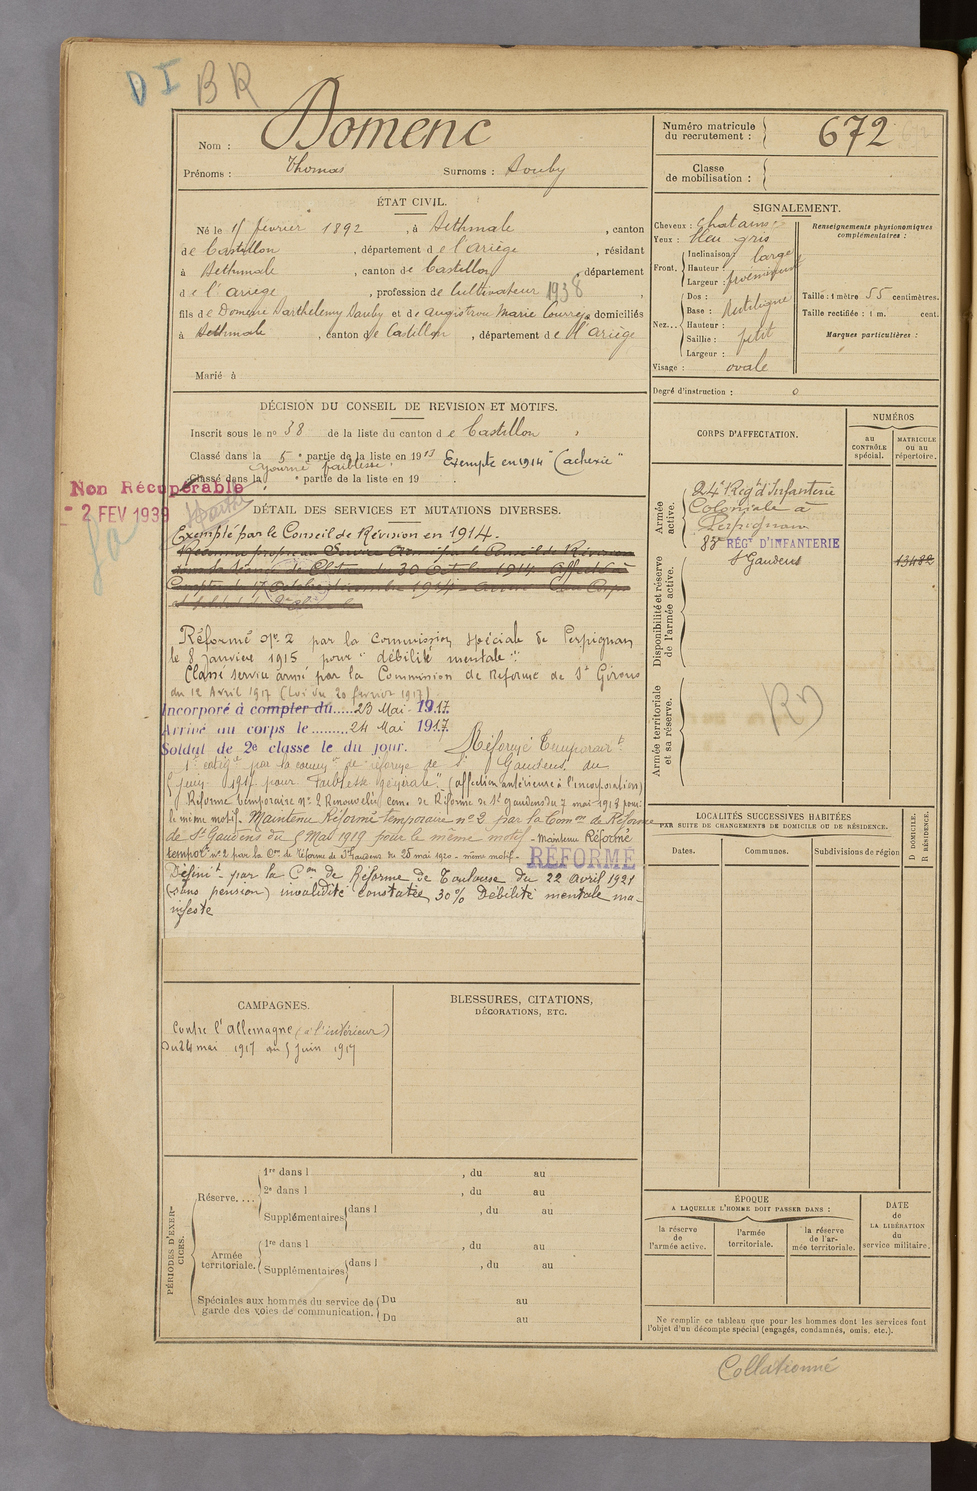 DI BR
Nom : Domenc
Prénoms : Thomas Surnoms : Souby
Numéro matricule du recrutement : 672
Classe de mobilisation :
ÉTAT CIVIL.
Né le 15 février 1892, à Sethmale, canton
de Castillon, département de l'Ariège, résidant
à Sethmale, canton de Castillon, département
de l'Ariège, profession de Cultivateur 1938
fils de Domenc Barthélemy et de Marie domiciliés
à Sethmale, canton de Castillon, département de l'Ariège
Marié à
SIGNALEMENT.
Cheveux : chatains
Yeux : bleu gris
Front. Inclinaison : large
Hauteur : proéminent
Largeur :
Nez... Dos : Rectiligne
Base :
Hauteur :
Saillie : petit
Largeur :
Visage : ovale
Renseignements physionomiques complémentaires :
Taille : 1 mètre 55 centimètres.
Taille rectifiée : 1 m. cent.
Marques particulières :
Degré d'instruction : 0
DÉCISION DU CONSEIL DE REVISION ET MOTIFS.
Inscrit sous le no 38 de la liste du canton de Castillon
Classé dans la 5e partie de la liste en 1913 Exempté en 1914 "Cachexie"
Ajourné faiblesse
Classé dans la e partie de la liste en 19 .
Non Récupérable
- 2 FEV 1939
DÉTAIL DES SERVICES ET MUTATIONS DIVERSES.
Exempté par le Conseil de Révision en 1914.
Réformé No 2 par la Commission spéciale de Perpignan
le 8 janvier 1915 pour "débilité mentale".
Classé service armé par la Commission de Réforme de St Girons
du 12 Avril 1917 (Loi du 20 février 1917)
Incorporé à compter du..... 23 Mai 1917
Arrivé au corps le......... 24 Mai 1917
Soldat de 2e classe le du jour. Réformé Temporairt
1e catégie par la common de réforme de St Gaudens du
5 juin 1917 pour "Faiblesse générale" (affection antérieure à l'incorporation)
Réforme temporaire No 2 Renouvelée Comn de Réforme de St Gaudens du 7 mai 1918 pour
le même motif. Maintenu Réformé temporaire no 2 par la Comon de Réforme
de St Gaudens du 5 Mai 1919 pour le même motif - Maintenu Réformé
tempore no 2 par la Con de réforme de St Gaudens du 25 mai 1920 - même motif - RÉFORMÉ
Définit par la Con de Réforme de Toulouse du 22 Avril 1921
(sans pension) invalidité constatée 30% Débilité mentale ma-
nifeste
CORPS D'AFFECTATION.
NUMÉROS
au CONTRÔLE spécial.
MATRICULE ou au répertoire.
Armée active.
24e Régt d'Infanterie
Coloniale à
Perpignan
83e RÉGt D'INFANTERIE
St Gaudens 13482
Disponibilité et réserve de l'armée active.
Armée territoriale et sa réserve.
LOCALITÉS SUCCESSIVES HABITÉES
PAR SUITE DE CHANGEMENTS DE DOMICILE OU DE RÉSIDENCE.
Dates. Communes. Subdivisions de région
D DOMICILE.
R RÉSIDENCE.
CAMPAGNES.
Contre l'Allemagne (à l'intérieur)
Du 24 mai 1917 au 5 juin 1917
BLESSURES, CITATIONS,
DÉCORATIONS, ETC.
PÉRIODES D'EXERCICES.
Réserve.... 1re dans l , du au
2e dans l , du au
Supplémentaires dans l , du au
Armée territoriale. 1re dans l , du au
Supplémentaires dans l , du au
Spéciales aux hommes du service de garde des voies de communication. Du au
Du au
ÉPOQUE
A LAQUELLE L'HOMME DOIT PASSER DANS :
la réserve de l'armée active.
l'armée territoriale.
la réserve de l'armée territoriale.
DATE de LA LIBÉRATION du service militaire.
Ne remplir ce tableau que pour les hommes dont les services font
l'objet d'un décompte spécial (engagés, condamnés, omis. etc.).
Collationné